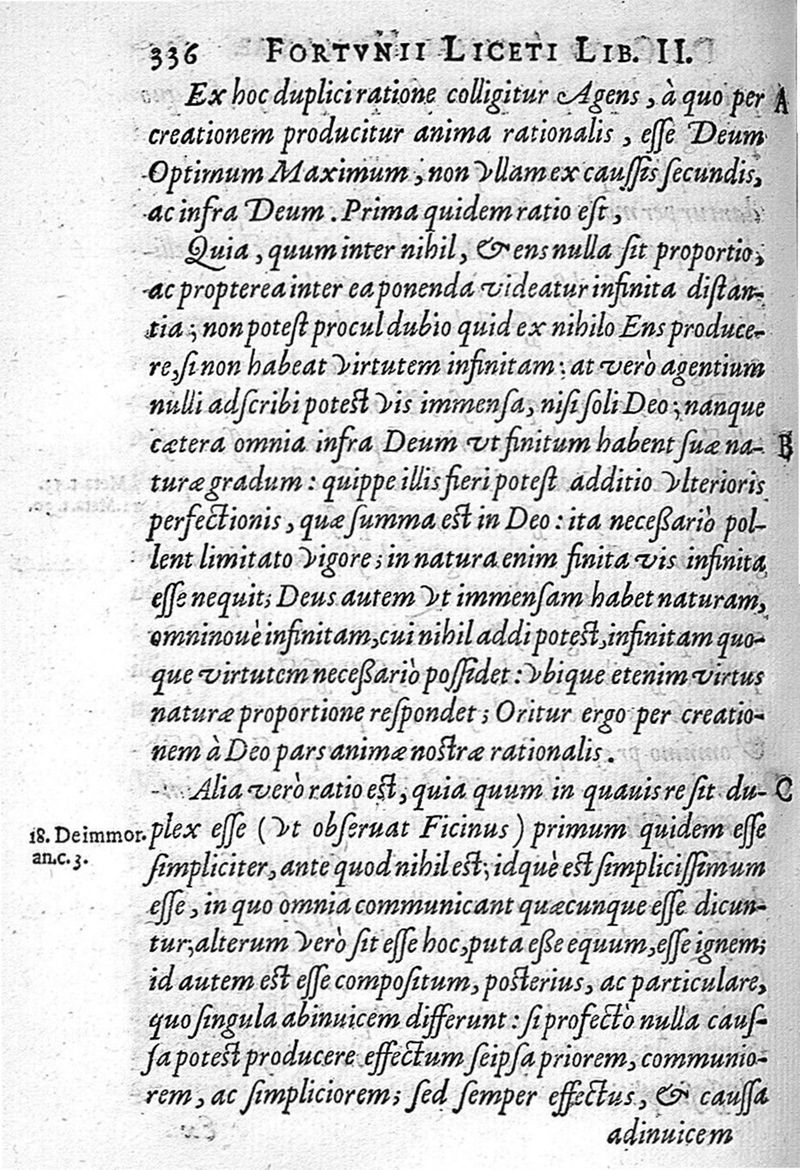 336 FORTVNII LICETI LIB. II.
Ex hoc duplici ratione colligitur Agens, à quo per A
creationem producitur anima rationalis, eſſe Deum
Optimum Maximum, non vllam ex cauſſis ſecundis,
ac infra Deum. Prima quidem ratio eſt,
Quia, quum inter nihil, & ens nulla ſit proportio,
ac propterea inter ea ponenda videatur infinita diſtan-
tia; non poteſt procul dubio quid ex nihilo Ens produce-
re, ſi non habeat virtutem infinitam: at verò agentium
nulli adſcribi poteſt vis immenſa, niſi ſoli Deo; nanque
cætera omnia infra Deum vt finitum habent ſuæ na- B
turæ gradum: quippe illis fieri poteſt additio vlterioris
perfectionis, quæ ſumma eſt in Deo: ita neceßariò pol-
lent limitato vigore; in natura enim finita vis infinita
eſſe nequit; Deus autem vt immenſam habet naturam,
omninouè infinitam, cui nihil addi poteſt, infinitam quo-
que virtutem neceßariò poſſidet: vbique etenim virtus
naturæ proportione reſpondet; Oritur ergo per creatio-
nem à Deo pars animæ noſtræ rationalis.
Alia verò ratio eſt, quia quum in quauis re ſit du- C
18. De immor. plex eſſe (vt obſeruat Ficinus) primum quidem eſſe
an. c. 3. ſimpliciter, ante quod nihil eſt; idquè eſt ſimpliciſſimum
eſſe, in quo omnia communicant quæcunque eſſe dicun-
tur; alterum verò ſit eſſe hoc, puta eße equum, eſſe ignem;
id autem eſt eſſe compoſitum, poſterius, ac particulare,
quo ſingula abinuicem differunt: ſi profectò nulla cauſ-
ſa poteſt producere effectum ſeipſa priorem, communio-
rem, ac ſimpliciorem; ſed ſemper effectus, & cauſſa
adinuicem